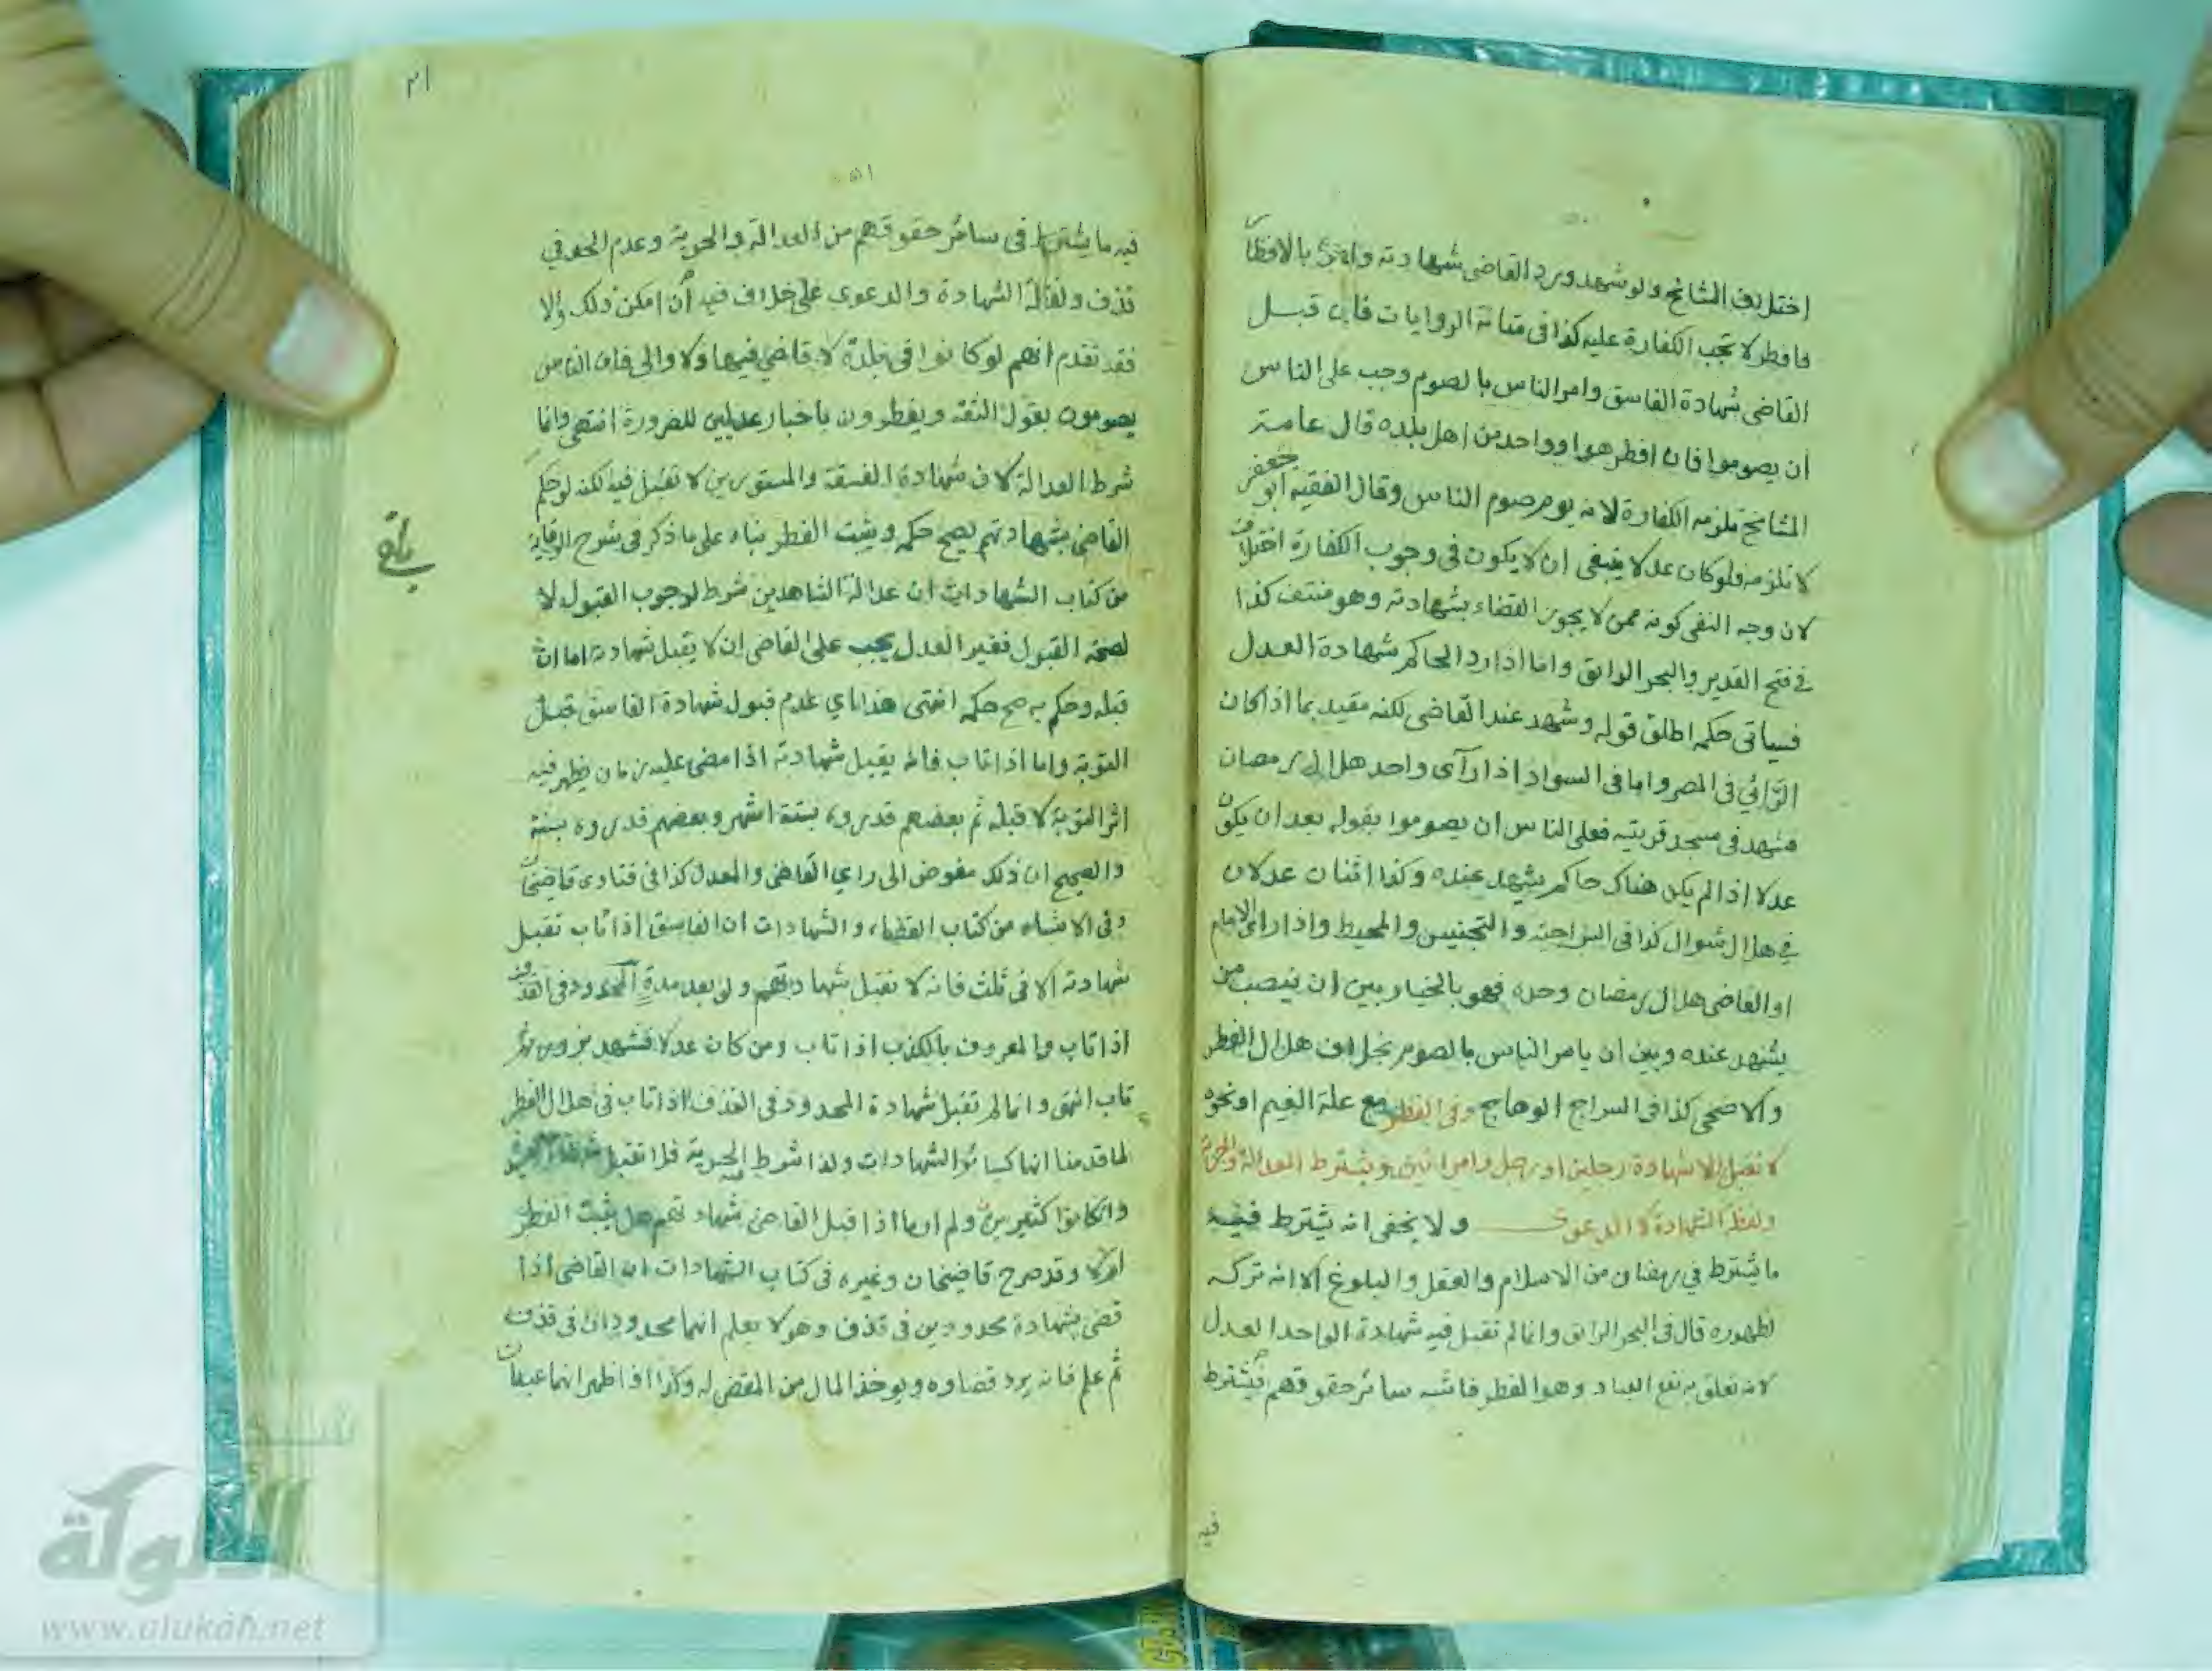 اختلف المشائخ ولو شهد ورد القاضي شهادته وافتى بالافطار
فافطر لا تجب الكفارة عليه كذا في الروايات فان قبل
القاضي شهادة الفاسق وامر الناس بالصوم وجب على الناس
ان يصوموا فان افطر هو او واحد من اهل بلده قال عامة
المشائخ تلزمه الكفارة لانه يوم صوم الناس وقال الفقيه ابو جعفر
لا تلزمه فلو كان عدلا ينبغي ان لا يكون في وجوب الكفارة اختلاف
لان وجه النفي كونه ممن لا يجوز القضاء بشهادته وهو منتف كذا
في فتح القدير والبحر الرائق واما اذا رد الحاكم شهادة العدل
فسياتي حكمه اطلق قوله وشهد عند القاضي لكنه مقيد بما اذا كان
الرائي في المصر واما في السواد اذا رآى واحد هلال رمضان
فشهد في مسجد قريته فعلى الناس ان يصوموا بقوله بعد ان يكون
عدلا اذا لم يكن هناك حاكم يشهد عنده وكذا اثنان عدلان
في هلال شوال كذا في السراجية والتجنيس والمحيط واذا راى الامام
او القاضي هلال رمضان وحده فهو بالخيار بين ان ينصب من
يشهد عنده وبين ان يامر الناس بالصوم بخلاف هلال الفطر
والاضحى كذا في السراج الوهاج وفي الفطر مع علة الغيم او نحوه
لا تقبل الا شهادة رجلين او رجل وامراتين ويشترط العدالة والحرية
ولفظ الشهادة لا الدعوى ولا يخفى انه يشترط فيه
ما يشترط في رمضان من الاسلام والعقل والبلوغ الا انه تركه
لظهوره قال في البحر الرائق وانما لم تقبل فيه شهادة الواحد العدل
لانه تعلق به نفع العباد وهو الفطر فاشبه سائر حقوقهم فيشترط
فيه
٥١
فيه ما يشترط في سائر حقوقهم من العدالة والحرية وعدم الحد في
قذف ولفظ الشهادة والدعوى على خلاف فيه ان امكن ذلك والا
فقد تقدم انهم لو كانوا في بلدة لا قاضي فيها ولا والي فان الناس
يصومون بقول الثقة ويفطرون باخبار عدلين للضرورة انتهى وانما
شرط العدالة لان شهادة الفسقة والمستورين لا تقبل فيه لكنه لو حكم
القاضي بشهادتهم يصح حكمه ويثبت الفطر بناء على ما ذكر في شرح الوقاية
من كتاب الشهادات ان عدالة الشاهدين شرط لوجوب القبول لا
لصحة القبول فغير العدل يجب على القاضي ان لا يقبل شهادته اما ان
قبله وحكم به صح حكمه انتهى هذا اي عدم قبول شهادة الفاسق قبل
التوبة واما اذا تاب فانه يقبل شهادته اذا مضى عليه زمان يظهر فيه
اثر التوبة لا قبله ثم بعضهم قدروه بستة اشهر وبعضهم قدروه بسنة
والصحيح ان ذلك مفوض الى راي القاضي والمعدل كذا في فتاوى قاضيخان
وفي الاشباه من كتاب القضاء والشهادات ان الفاسق اذا تاب تقبل
شهادته الا في ثلث فانه لا تقبل شهادتهم ولو بعد مدة المحدود في القذف
اذا تاب والمعروف بالكذب اذا تاب ومن كان عدلا فشهد بزور ثم
تاب انتهى وانما لم تقبل شهادة المحدود في القذف اذا تاب في هلال الفطر
لما قدمنا انها كسائر الشهادات ولذا شرط الحرية فلا تقبل
وان كانوا كثيرين ولم ار ما اذا قبل القاضي شهادتهم هل يثبت الفطر
ام لا وقد صرح قاضيخان وغيره في كتاب الشهادات ان القاضي اذا
قضى بشهادة محدودين في قذف وهو لا يعلم انهما محدودان في قذف
ثم علم فانه يرد قضاوه ويوخذ المال من المقضي له وكذا اذا ظهر انهما عبدان
الألوكة
www.alukah.net